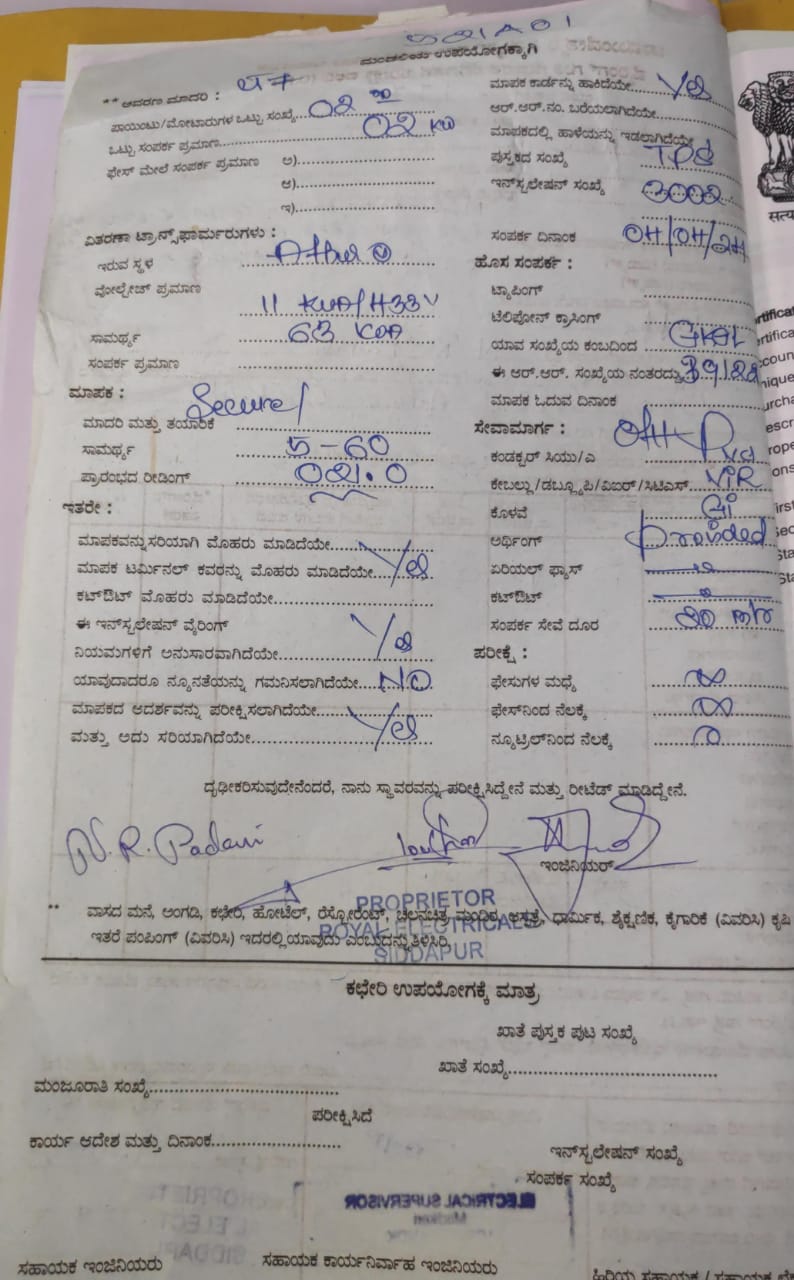 ಮಂಡಲಿಯ ಉಪಯೋಗಕ್ಕಾಗಿ
** ಆವರಣ ಮಾದರಿ :
ಪಾಯಿಂಟು/ಮೋಟಾರುಗಳ ಒಟ್ಟು ಸಂಖ್ಯೆ... 02
ಒಟ್ಟು ಸಂಪರ್ಕ ಪ್ರಮಾಣ... 02 KW
ಫೇಸ್ ಮೇಲೆ ಸಂಪರ್ಕ ಪ್ರಮಾಣ ಅ)...
ಆ)...
ಇ)...
ವಿತರಣಾ ಟ್ರಾನ್ಸ್‌ಫಾರ್ಮರುಗಳು :
ಇರುವ ಸ್ಥಳ
ವೋಲ್ಟೇಜ್ ಪ್ರಮಾಣ
11 KVA/433V
ಸಾಮರ್ಥ್ಯ 63 KVA
ಸಂಪರ್ಕ ಪ್ರಮಾಣ
ಮಾಪಕ :
ಮಾದರಿ ಮತ್ತು ತಯಾರಿಕೆ Secure
ಸಾಮರ್ಥ್ಯ 5-60
ಪ್ರಾರಂಭದ ರೀಡಿಂಗ್
ಇತರೇ :
ಮಾಪಕವನ್ನು ಸರಿಯಾಗಿ ಮೊಹರು ಮಾಡಿದೆಯೇ...
ಮಾಪಕ ಟರ್ಮಿನಲ್ ಕವರನ್ನು ಮೊಹರು ಮಾಡಿದೆಯೇ... Yes
ಕಟ್‌ಔಟ್ ಮೊಹರು ಮಾಡಿದೆಯೇ...
ಈ ಇನ್‌ಸ್ಟಲೇಷನ್ ವೈರಿಂಗ್
ನಿಯಮಗಳಿಗೆ ಅನುಸಾರವಾಗಿದೆಯೇ... Yes
ಯಾವುದಾದರೂ ನ್ಯೂನತೆಯನ್ನು ಗಮನಿಸಲಾಗಿದೆಯೇ... NO
ಮಾಪಕದ ಆದರ್ಶವನ್ನು ಪರೀಕ್ಷಿಸಲಾಗಿದೆಯೇ...
ಮತ್ತು ಅದು ಸರಿಯಾಗಿದೆಯೇ... Yes
ಮಾಪಕ ಕಾರ್ಡನ್ನು ಹಾಕಿದೆಯೇ... Yes
ಆರ್.ಆರ್.ನಂ. ಬರೆಯಲಾಗಿದೆಯೇ...
ಮಾಪಕದಲ್ಲಿ ಹಾಳೆಯನ್ನು ಇಡಲಾಗಿದೆಯೇ
ಪುಸ್ತಕದ ಸಂಖ್ಯೆ
ಇನ್‌ಸ್ಟಲೇಷನ್ ಸಂಖ್ಯೆ 3002
ಸಂಪರ್ಕ ದಿನಾಂಕ 04/04/24
ಹೊಸ ಸಂಪರ್ಕ :
ಟ್ಯಾಪಿಂಗ್
ಟೆಲಿಫೋನ್ ಕ್ರಾಸಿಂಗ್
ಯಾವ ಸಂಖ್ಯೆಯ ಕಂಬದಿಂದ
ಈ ಆರ್.ಆರ್. ಸಂಖ್ಯೆಯ ನಂತರದ್ದು
ಮಾಪಕ ಓದುವ ದಿನಾಂಕ
ಸೇವಾಮಾರ್ಗ :
ಕಂಡಕ್ಟರ್ ಸಿಯು/ಎ
ಕೇಬಲ್ಲು/ಡಬ್ಲ್ಯೂಪಿ/ವಿಐಆರ್/ಸಿಟಿಎಸ್... VIR
ಕೊಳವೆ GI
ಅರ್ಥಿಂಗ್ provided
ಏರಿಯಲ್ ಫ್ಯೂಸ್
ಕಟ್‌ಔಟ್
ಸಂಪರ್ಕ ಸೇವೆ ದೂರ
ಪರೀಕ್ಷೆ :
ಫೇಸುಗಳ ಮಧ್ಯೆ
ಫೇಸ್‌ನಿಂದ ನೆಲಕ್ಕೆ
ನ್ಯೂಟ್ರಲ್‌ನಿಂದ ನೆಲಕ್ಕೆ
ದೃಢೀಕರಿಸುವುದೇನೆಂದರೆ, ನಾನು ಸ್ಥಾವರವನ್ನು ಪರೀಕ್ಷಿಸಿದ್ದೇನೆ ಮತ್ತು ರೀಟೆಡ್ ಮಾಡಿದ್ದೇನೆ.
N. R. Padavi
ಇಂಜಿನಿಯರ್
PROPRIETOR
ROYAL ELECTRICALS
SIDDAPUR
** ವಾಸದ ಮನೆ, ಅಂಗಡಿ, ಕಛೇರಿ, ಹೋಟೆಲ್, ರೆಸ್ಟೋರೆಂಟ್, ಚಲನಚಿತ್ರ ಮಂದಿರ, ಆಸ್ಪತ್ರೆ, ಧಾರ್ಮಿಕ, ಶೈಕ್ಷಣಿಕ, ಕೈಗಾರಿಕೆ (ವಿವರಿಸಿ) ಕೃಷಿ
ಇತರೆ ಪಂಪಿಂಗ್ (ವಿವರಿಸಿ) ಇದರಲ್ಲಿ ಯಾವುದು ಎಂಬುದನ್ನು ತಿಳಿಸಿರಿ.
ಕಛೇರಿ ಉಪಯೋಗಕ್ಕೆ ಮಾತ್ರ
ಖಾತೆ ಪುಸ್ತಕ ಪುಟ ಸಂಖ್ಯೆ
ಖಾತೆ ಸಂಖ್ಯೆ...
ಮಂಜೂರಾತಿ ಸಂಖ್ಯೆ...
ಪರೀಕ್ಷಿಸಿದೆ
ಕಾರ್ಯ ಆದೇಶ ಮತ್ತು ದಿನಾಂಕ...
ಇನ್‌ಸ್ಟಲೇಷನ್ ಸಂಖ್ಯೆ
ಸಂಪರ್ಕ ಸಂಖ್ಯೆ
ELECTRICAL SUPERVISOR
ಸಹಾಯಕ ಇಂಜಿನಿಯರು
ಸಹಾಯಕ ಕಾರ್ಯನಿರ್ವಾಹ ಇಂಜಿನಿಯರು